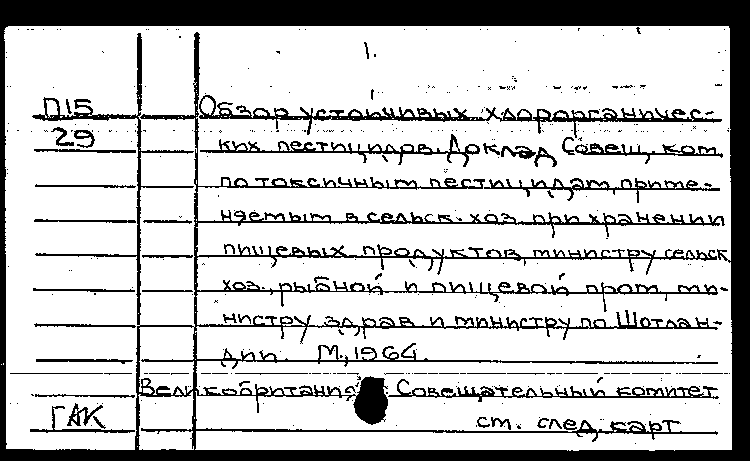 1.
П15 Обзор устойчивых хлорорганичес-
29 ких пестицидов. Доклад Совещ. ком.
по токсичным пестицидам, приме-
няемым в сельск. хоз. при хранении
пищевых продуктов, министру сельск.
хоз., рыбной и пищевой пром, ми-
нистру здрав и министру по Шотлан-
дии. М., 1964.
Великобритания Совещательный комитет
ГАК ст. след. карт